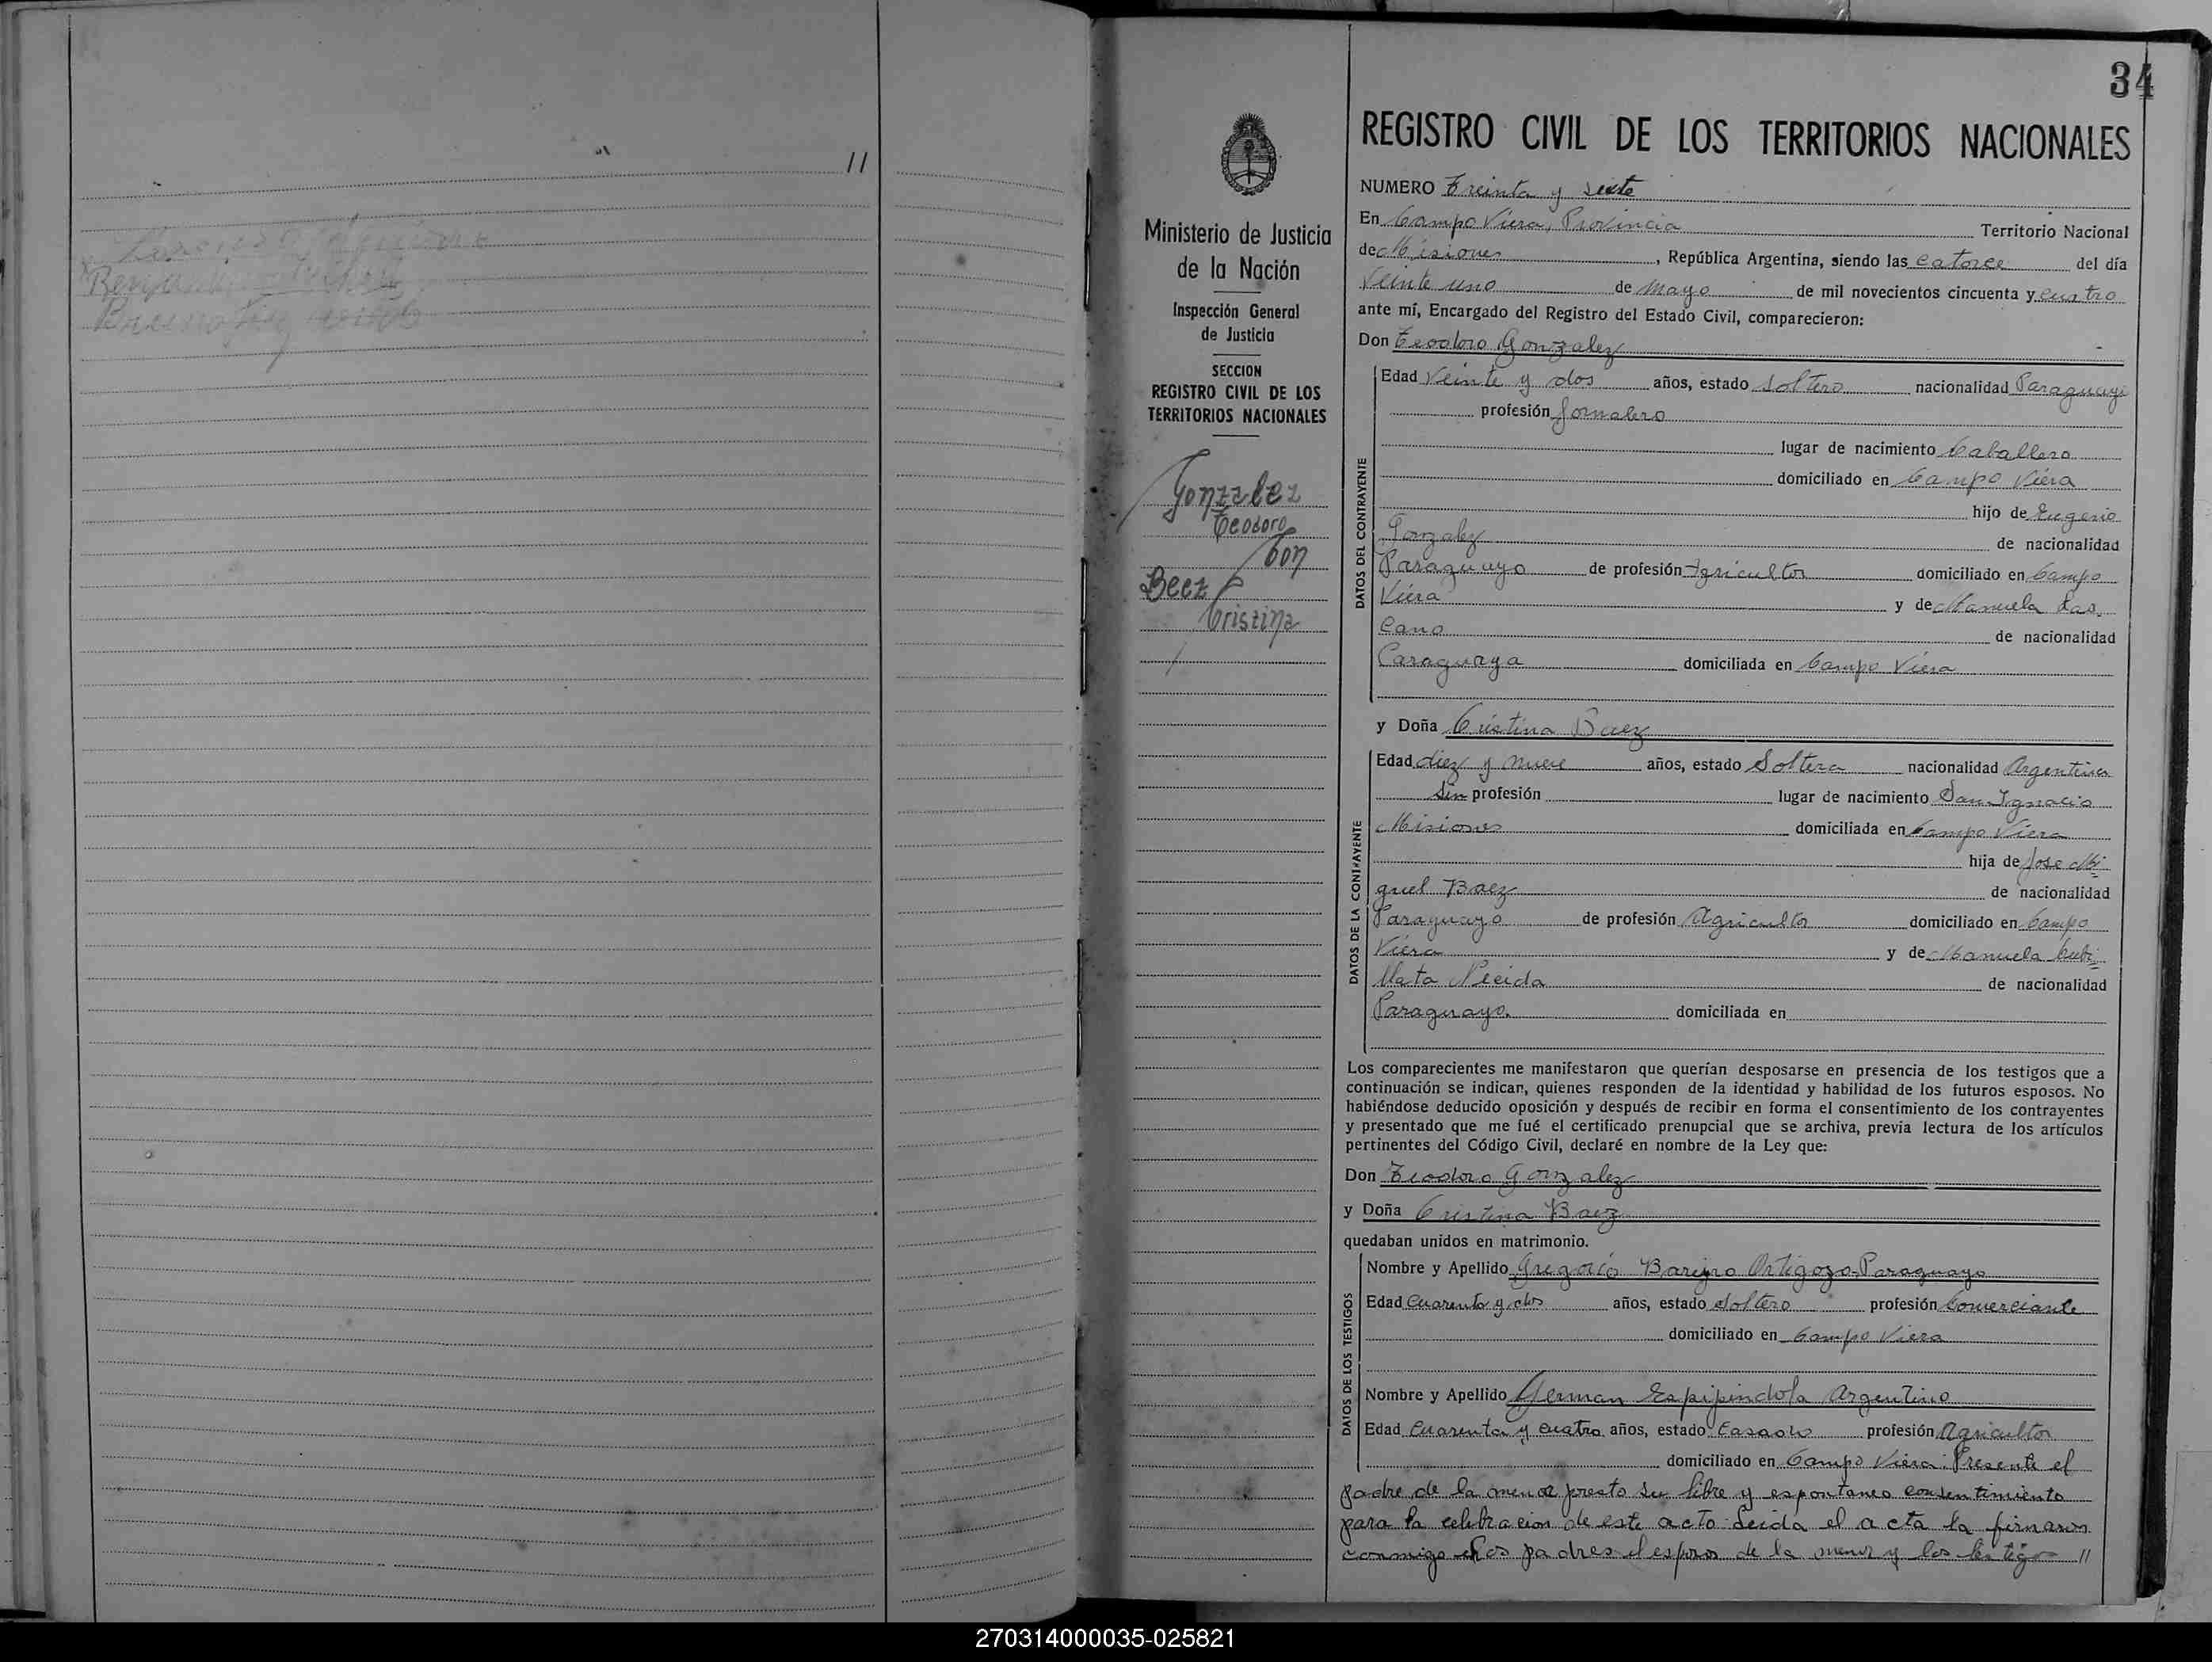 11
34
REGISTRO CIVIL DE LOS TERRITORIOS NACIONALES
Ministerio de Justicia
de la Nación
Inspección General
de Justicia
SECCION
REGISTRO CIVIL DE LOS
TERRITORIOS NACIONALES
Gonzalez
Teodoro
Con
Baez
Cristina
NUMERO Treinta y siete
En Campo Viera, Provincia Territorio Nacional
de Misiones, República Argentina, siendo las catorce del día
Veinte uno de Mayo de mil novecientos cincuenta y cuatro
ante mí, Encargado del Registro del Estado Civil, comparecieron:
Don Teodoro Gonzalez
DATOS DEL CONTRAYENTE
Edad Veinte y dos años, estado Soltero nacionalidad Paraguayo
profesión Jornalero
lugar de nacimiento Caballero
domiciliado en Campo Viera
hijo de Eugenio
Gonzalez de nacionalidad
Paraguayo de profesión Agricultor domiciliado en Campo
Viera y de Manuela Las
Cano de nacionalidad
Paraguaya domiciliada en Campo Viera
y Doña Cristina Baez
DATOS DE LA CONTRAYENTE
Edad diez y nueve años, estado Soltera nacionalidad Argentina
Sin profesión lugar de nacimiento San Ignacio
Misiones domiciliada en Campo Viera
hija de Jose Mi-
guel Baez de nacionalidad
Paraguayo de profesión Agricultor domiciliado en Campo
Viera y de Manuela Cubi=
lla de nacionalidad
Paraguayo. domiciliada en
Los comparecientes me manifestaron que querían desposarse en presencia de los testigos que a
continuación se indican, quienes responden de la identidad y habilidad de los futuros esposos. No
habiéndose deducido oposición y después de recibir en forma el consentimiento de los contrayentes
y presentado que me fué el certificado prenupcial que se archiva, previa lectura de los artículos
pertinentes del Código Civil, declaré en nombre de la Ley que:
Don Teodoro Gonzalez
y Doña Cristina Baez
quedaban unidos en matrimonio.
DATOS DE LOS TESTIGOS
Nombre y Apellido Gregorio Bareyro Ortigozo-Paraguayo
Edad Cuarenta y dos años, estado Soltero profesión Comerciante
domiciliado en Campo Viera
Nombre y Apellido German Espipindola Argentino
Edad Cuarenta y cuatro años, estado Casado profesión Agricultor
domiciliado en Campo Viera. Presente el
padre de la menor presto su libre y espontaneo consentimiento
para la celebracion de este acto. Leida el acta la firmaron
conmigo los padres el esposo de la menor y los testigos //
270314000035-025821